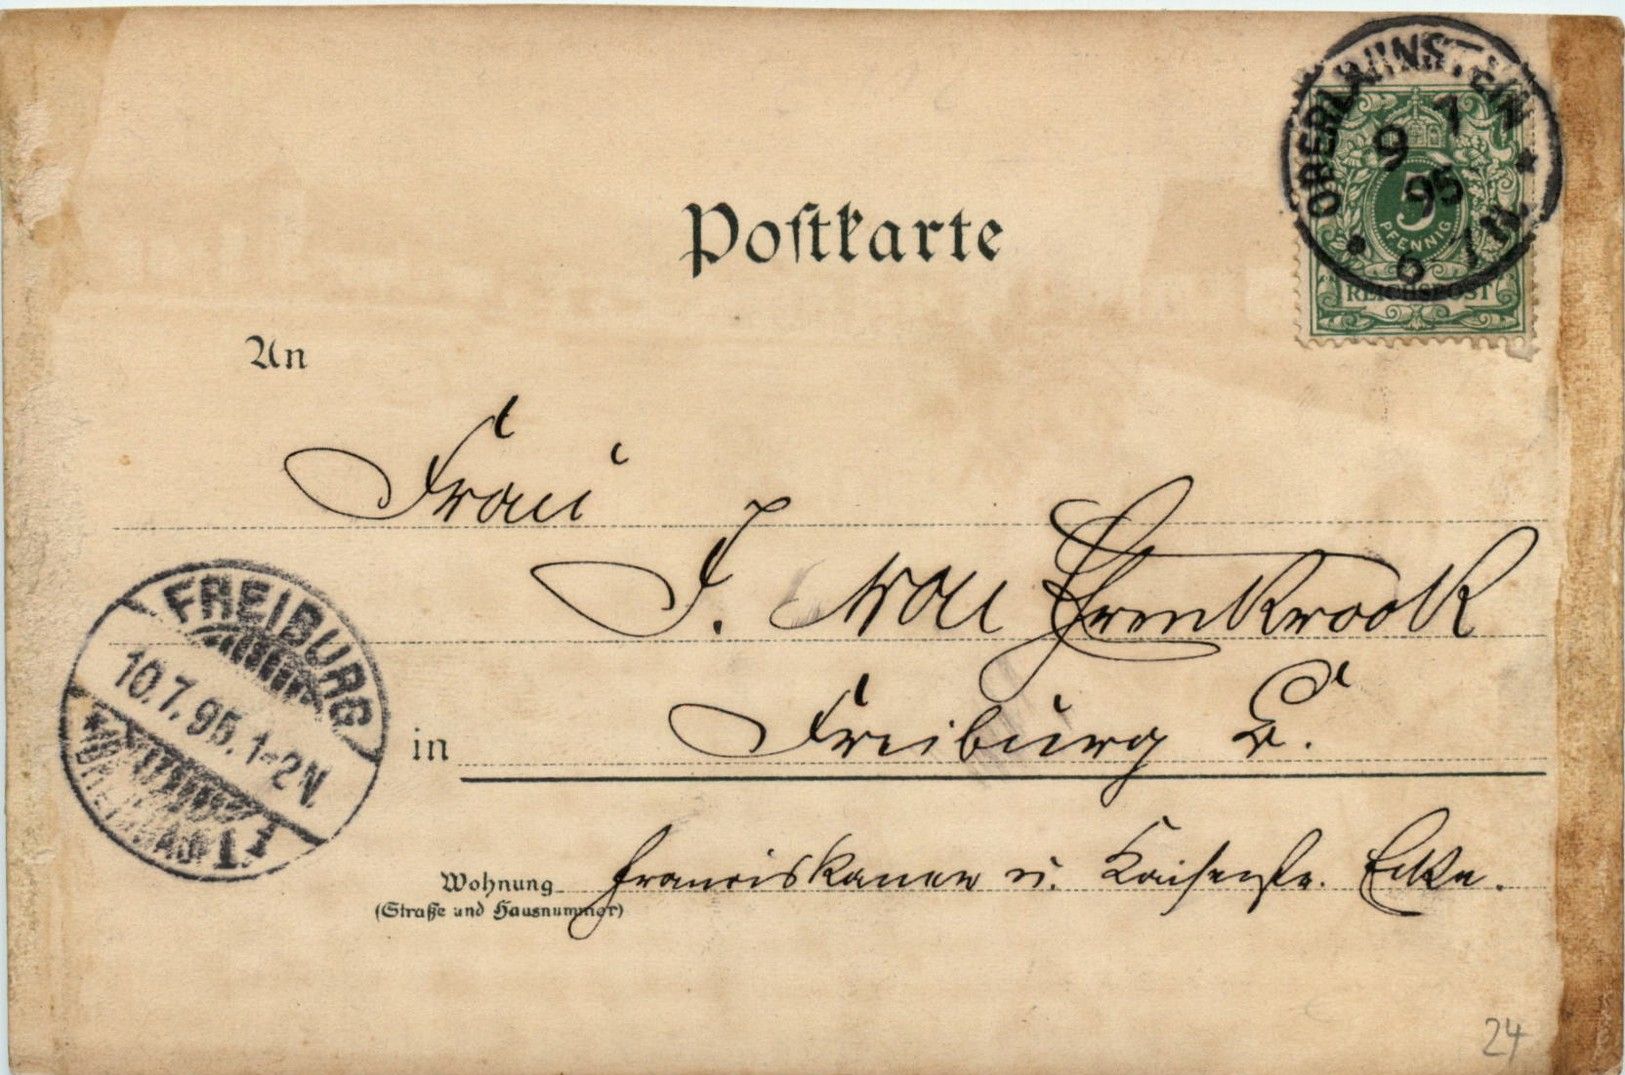 OBERLAHNSTEIN
9 7
95
6 7 N.
5
PFENNIG
REICHSPOST
Postkarte
An
Frau
J. von
Freiburg B.
in
FREIBURG
10.7.95.1-2N.
1.
Franziskaner u. Kaiserstr. Ecke.
Wohnung
(Straße und Hausnummer)
24